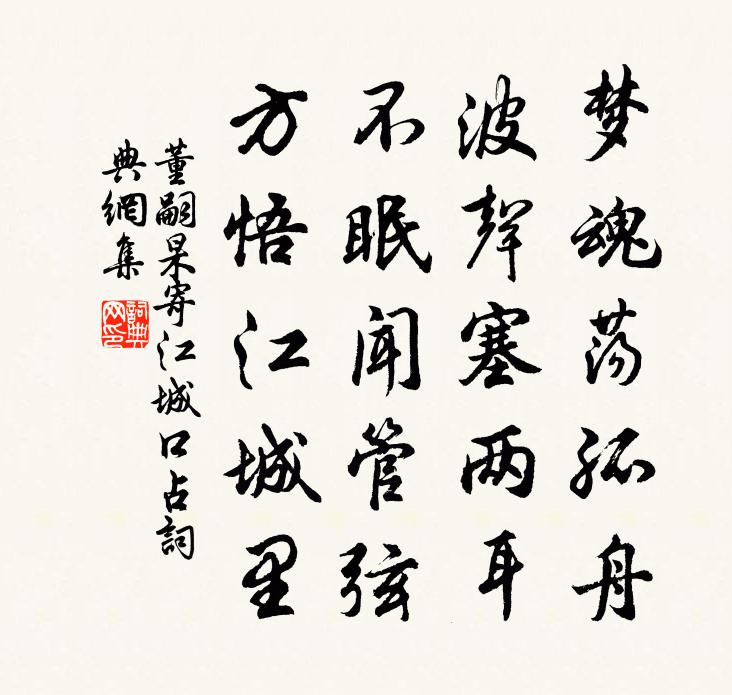 梦魂荡孤舟
波聲塞两耳
不眠闻管弦
方悟江城里
董嗣杲寄江城口占詞
典網集
詞典网印